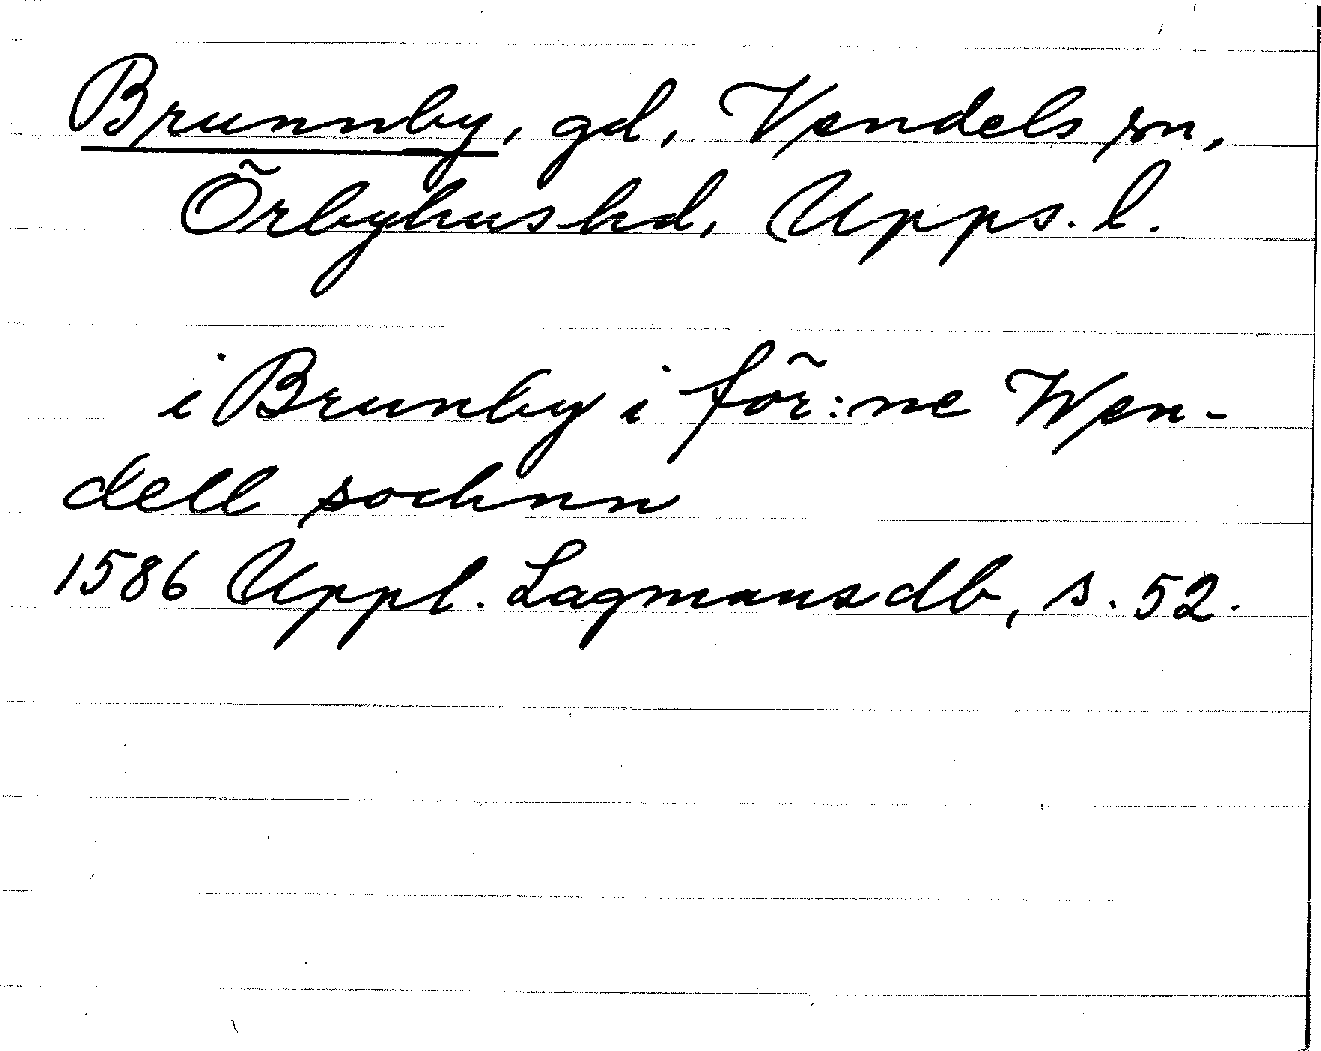 Brunnby, gd, Vendels sn,
Örbyhus hd, Upps. l.
i Brunby i för:ne Wen-
dell sochnn
1586 Uppl. Lagmansdb, s. 52.